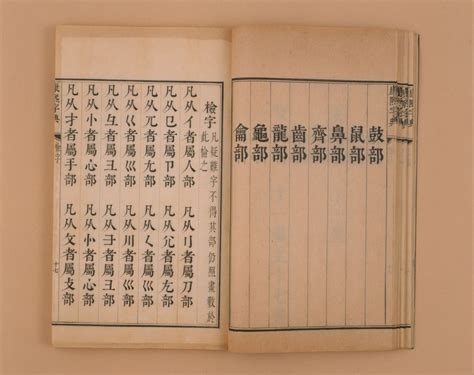 鼓部
鼠部
鼻部
齊部
齒部
龍部
龜部
龠部
檢字
凡疑難字不得其部仍照畫數於
此檢之
凡从亻者屬人部 凡从刂者屬刀部
凡从㔾者屬卩部 凡从尣者屬尢部
凡从兀者屬尢部 凡从𡿨者屬巛部
凡从巜者屬巛部 凡从川者屬巛部
凡从彑者屬彐部 凡从者屬彐部
凡从忄者屬心部 凡从㣺者屬心部
凡从扌者屬手部 凡从攵者屬攴部
康熙字典
檢字